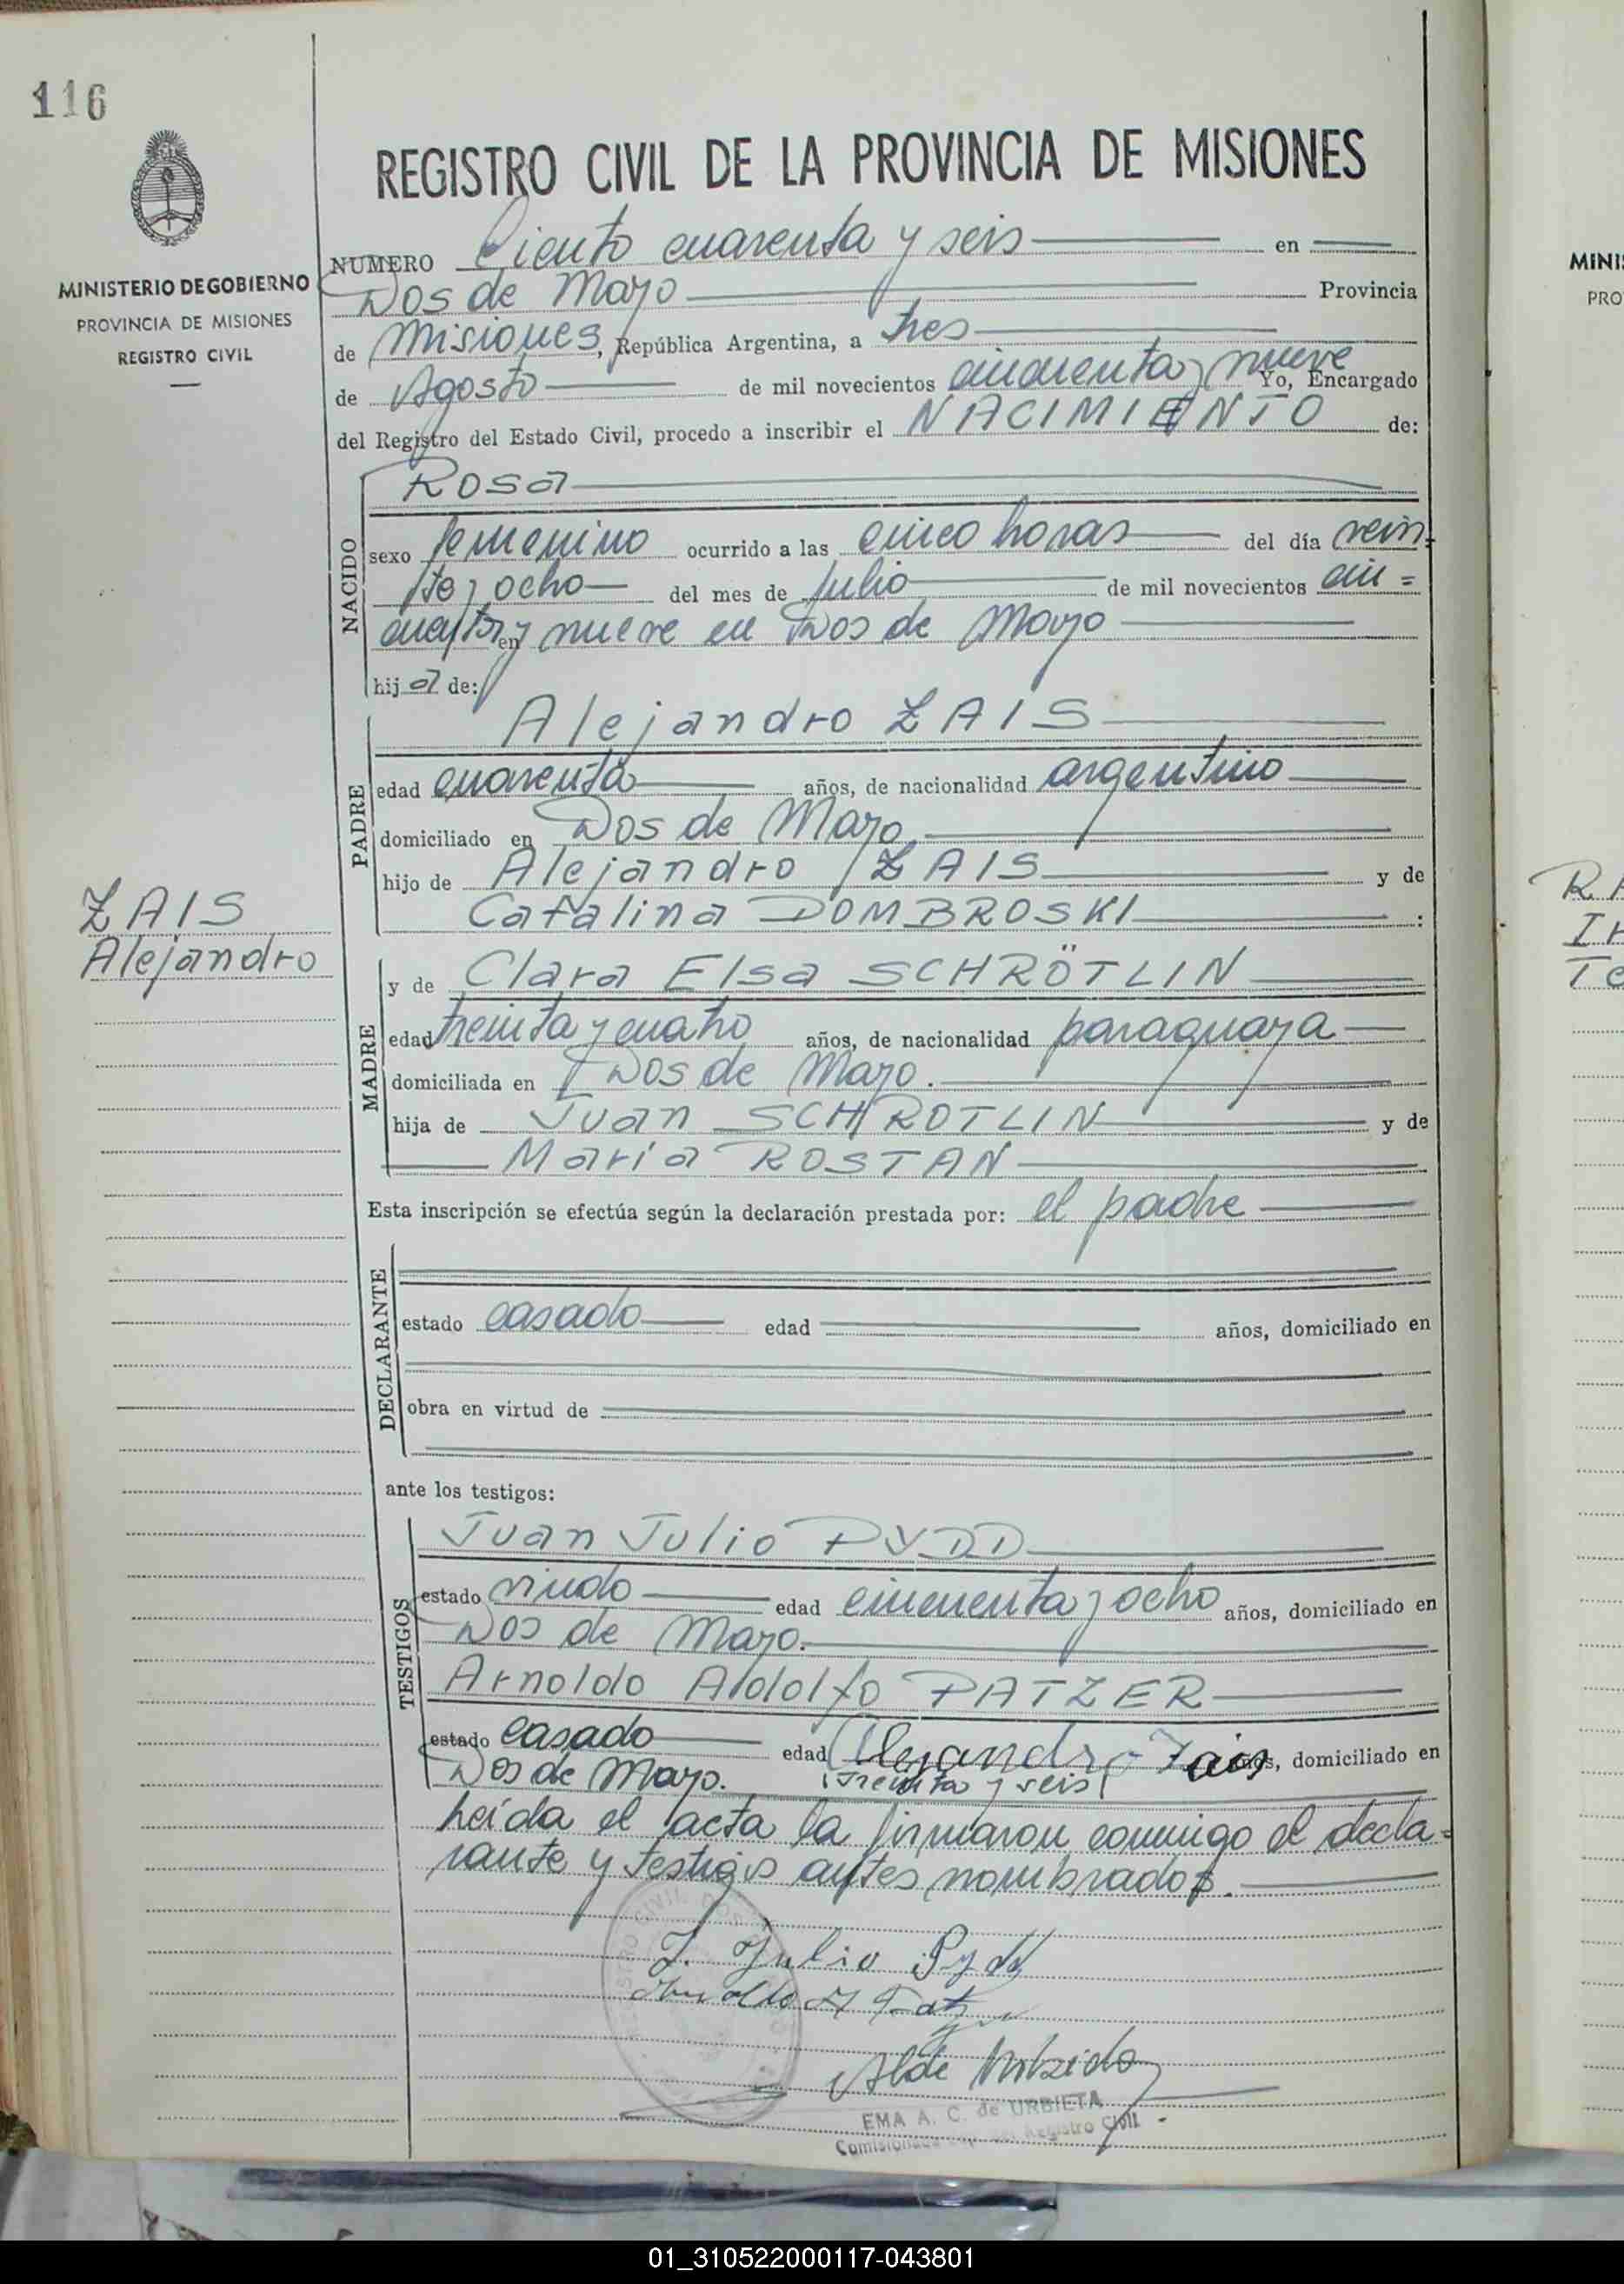 116
REGISTRO CIVIL DE LA PROVINCIA DE MISIONES
MINISTERIO DE GOBIERNO
PROVINCIA DE MISIONES
REGISTRO CIVIL
NUMERO Ciento cuarenta y seis en
Dos de Mayo Provincia
de Misiones, República Argentina, a tres
de Agosto de mil novecientos cincuenta y nueve Yo, Encargado
del Registro del Estado Civil, procedo a inscribir el NACIMIENTO de:
NACIDO
Rosa
sexo femenino ocurrido a las cinco horas del día vein-
te y ocho del mes de Julio de mil novecientos cin=
cuenta y nueve en Dos de Mayo
hija de:
PADRE
Alejandro ZAIS
edad cuarenta años, de nacionalidad argentino
domiciliado en Dos de Mayo
hijo de Alejandro ZAIS y de
Catalina DOMBROSKI :
ZAIS
Alejandro
MADRE
y de Clara Elsa SCHRÖTLIN
edad treinta y cuatro años, de nacionalidad paraguaya
domiciliada en Dos de Mayo.
hija de Juan SCHROTLIN y de
Maria ROSTAN
Esta inscripción se efectúa según la declaración prestada por: el padre
DECLARANTE
estado casado edad años, domiciliado en
obra en virtud de
ante los testigos:
TESTIGOS
Juan Julio PYDD
estado viudo edad cincuenta y ocho años, domiciliado en
Dos de Mayo.
Arnoldo Adolfo PATZER
estado casado edad Alejandro Zais años, domiciliado en
Dos de Mayo. (treinta y seis)
Leída el acta la firmaron conmigo el decla=
rante y testigos antes nombrados.
J. Julio Pydd
Arnoldo A Patzer
EMA A. C. de URBIETA
Registro Civil
MINIS
PRO
01_310522000117-043801